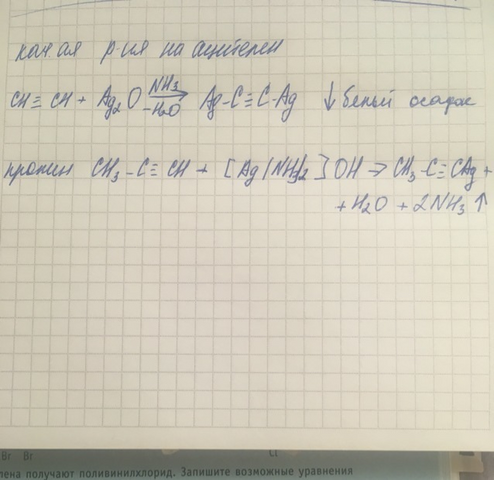 кач ая р-ия на ацителен
CH≡CH + Ag₂O NH₃ -H₂O → Ag-C≡C-Ag ↓ белый осадок
пропин CH₃-C≡CH + [Ag(NH₃)₂]OH → CH₃-C≡CAg +
+ H₂O + 2NH₃ ↑
Br Br Cl
лена получают поливинилхлорид. Запишите возможные уравнения